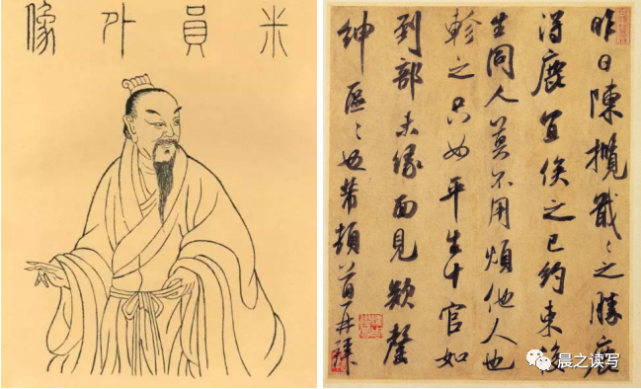 米員外像
昨日陳攬戢〻之勝
得鹿宜俟之已約束後
生同人莫不用煩他人也
軫之只如平生十官如
到部未緣面見欵罄
紳區〻也芾頓首再拜
晨之读写